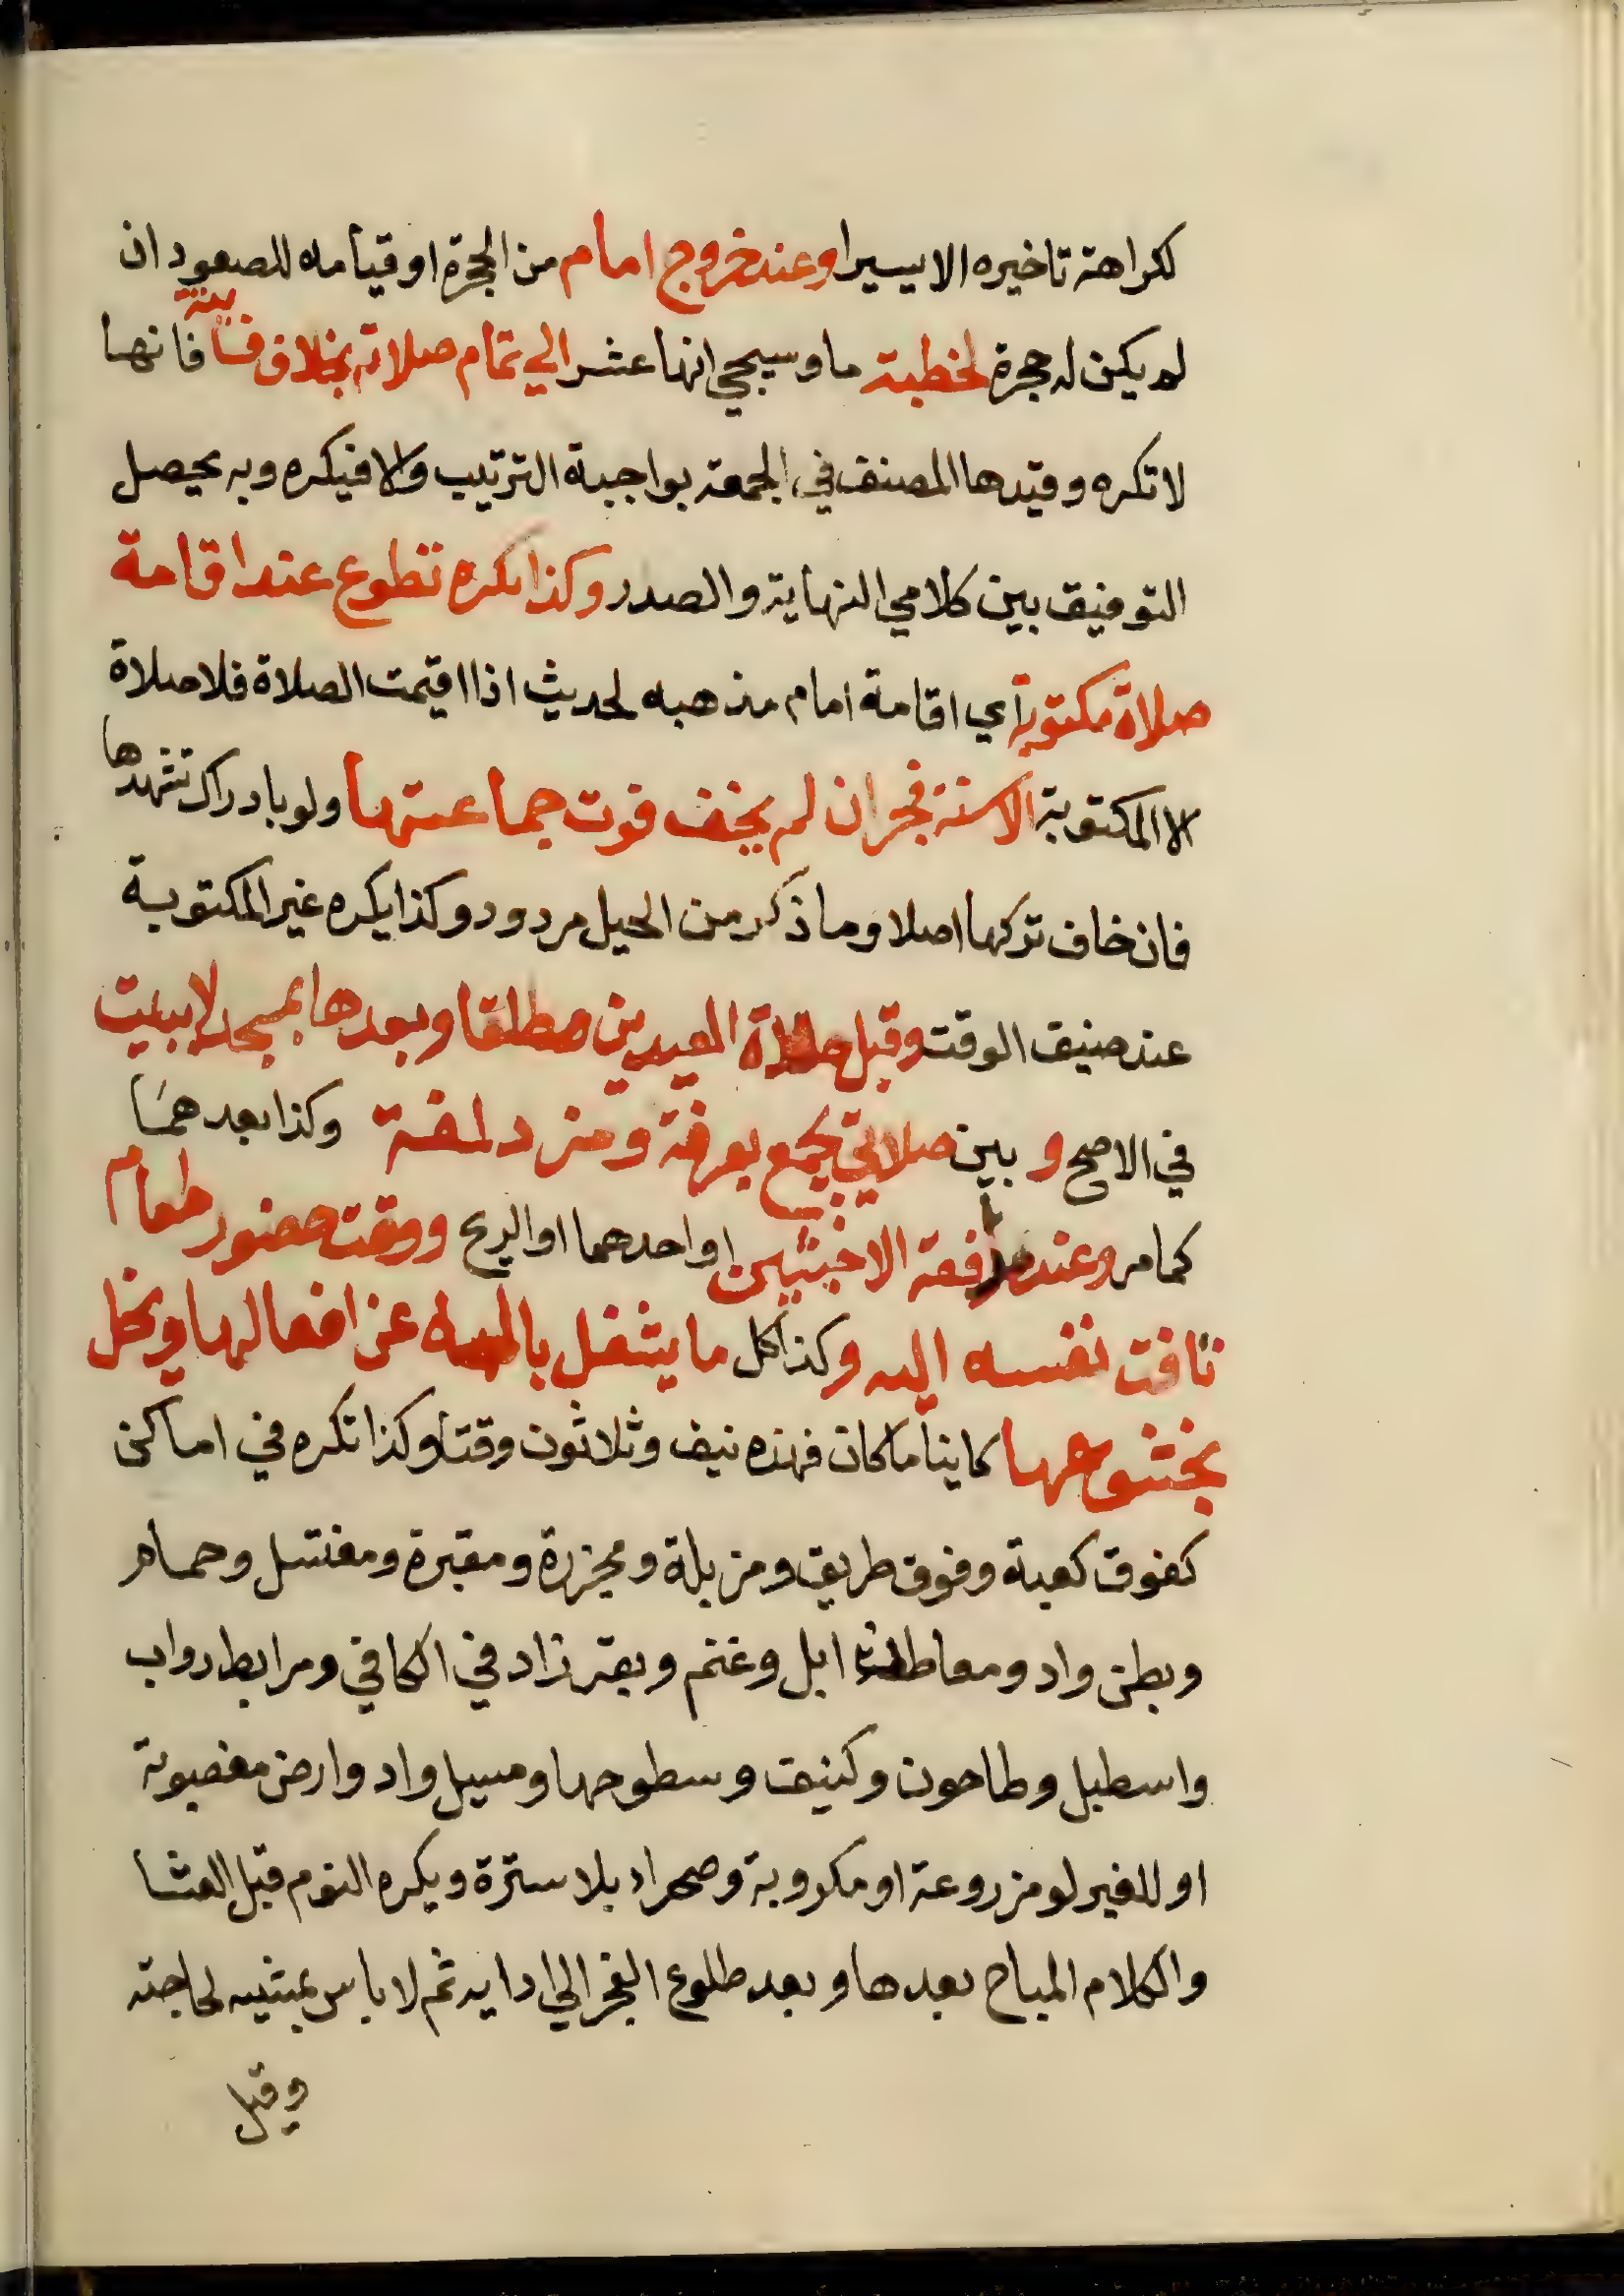 لكراهة تاخيره الا يسيرا وعند خروج امام من الحجرة او قيامه للصعود ان
لم يكن له حجرة لخطبة ما وسيجي انها عشر الي تمام صلاته بخلاف فائتة فانها
لا تكره وقيدها المصنف في الجمعة بواجبة الترتيب والا فيكره وبه يحصل
التوفيق بين كلامي النهاية والصدر وكذا يكره تطوع عند اقامة
صلاة مكتوبة اي اقامة امام مذهبه لحديث اذا اقيمت الصلاة فلا صلاة
الا المكتوبة الا سنة فجر ان لم يخف فوت جماعتها ولو بادراك تشهدها
فان خاف تركها اصلا وما ذكر من الحيل مردود وكذا يكره غير المكتوبة
عند ضيق الوقت وقبل صلاة العيدين مطلقا وبعدها بمسجد لا ببيت
في الاصح و بين صلاتي جمع بعرفة ومزدلفة وكذا بعدهما
كما مر وعند مدافعة الاخبثين او احدهما او الريح ووقت حضور طعام
تاقت نفسه اليه وكذا كل ما يشغل باله عن افعالها ويخل
بخشوعها كاينا ما كان فهذه نيف وثلاثون وقتا وكذا تكره في اماكن
كفوق كعبة وفوق طريق ومزبلة ومجزرة ومقبرة ومغتسل وحمام
وبطن واد ومعاطن ابل وغنم وبقر زاد في الكافي ومرابط دواب
واسطبل وطاحون وكنيف وسطوحها ومسيل واد وارض مغصوبة
او للغير لو مزروعة او مكروبة وصحراء بلا سترة ويكره النوم قبل العشا
والكلام المباح بعدها وبعد طلوع الفجر الي ادايه ثم لا باس بمشيه لحاجته
وقيل